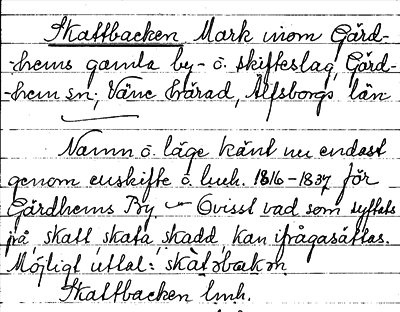 Skattbacken Mark inom Gärd-
-hems gamla by- o. skifteslag, Gärd-
-hem sn, Väne härad, Älfsborgs län
Namn o. läge känt nu endast
genom enskifte o. lmh. 1816-1837 för
Gärdhems By. — Ovisst vad som syftets
på, skatt, skata, skadd, kan ifrågasättas.
Möjligt uttal: skàt₂bakm
Skattbacken lmh.